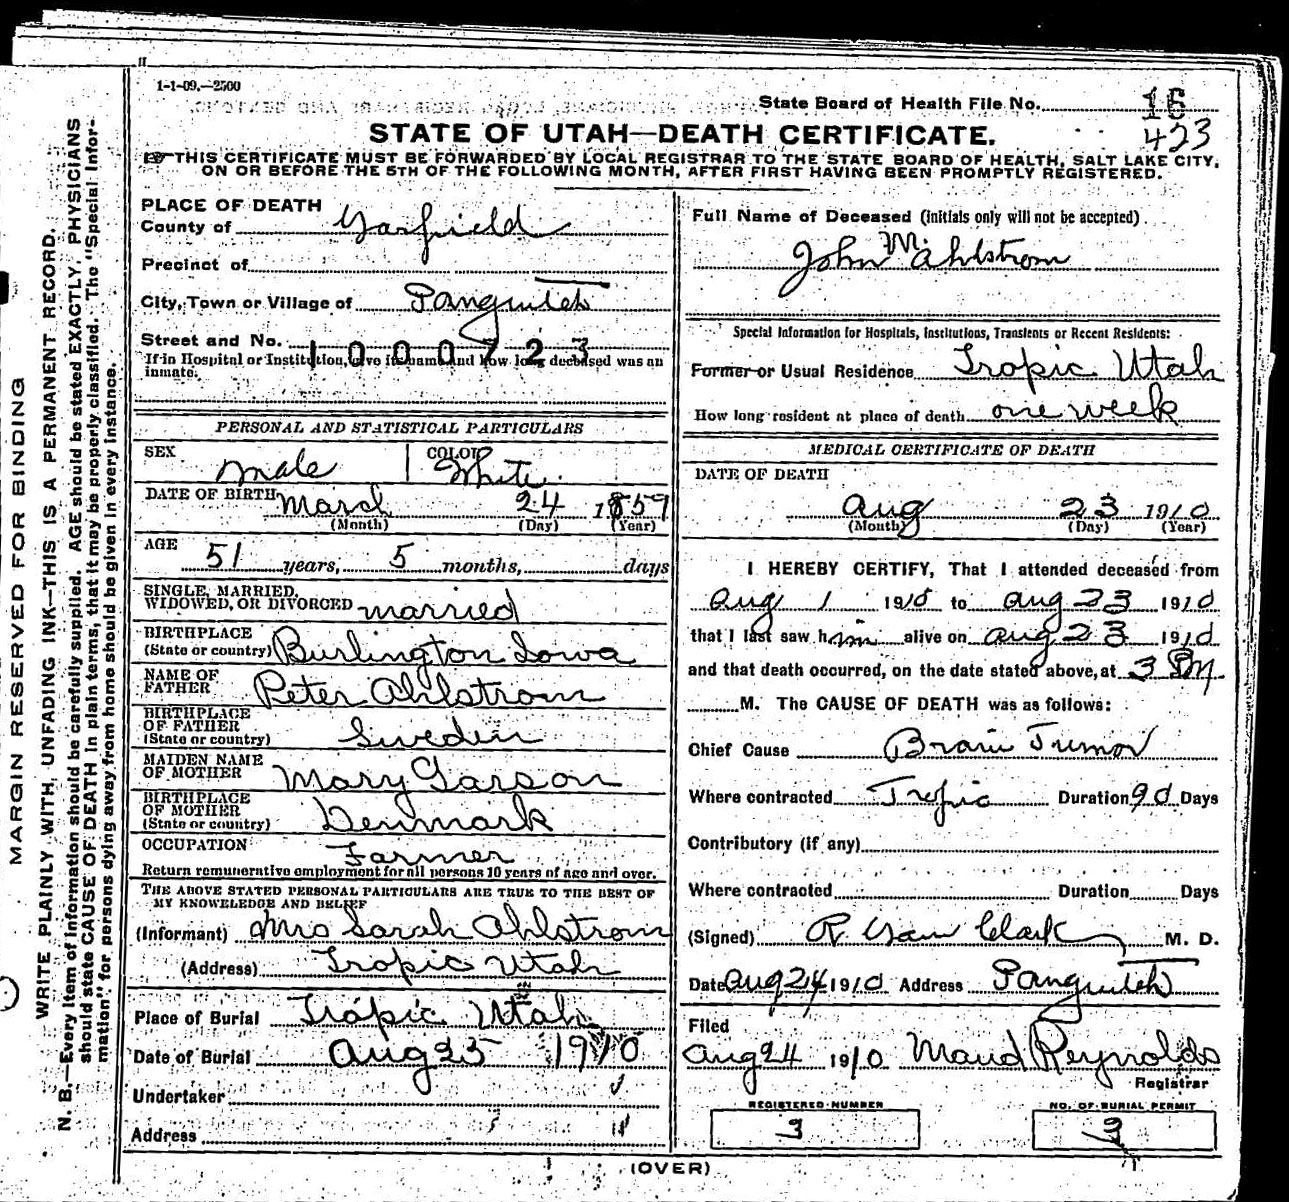 1-1-09.—2500
State Board of Health File No. 16
423
STATE OF UTAH—DEATH CERTIFICATE.
THIS CERTIFICATE MUST BE FORWARDED BY LOCAL REGISTRAR TO THE STATE BOARD OF HEALTH, SALT LAKE CITY,
ON OR BEFORE THE 5TH OF THE FOLLOWING MONTH, AFTER FIRST HAVING BEEN PROMPTLY REGISTERED.
MARGIN RESERVED FOR BINDING
WRITE PLAINLY WITH UNFADING INK—THIS IS A PERMANENT RECORD.
N. B.—Every item of information should be carefully supplied. AGE should be stated EXACTLY, PHYSICIANS
should state CAUSE OF DEATH in plain terms, that it may be properly classified. The "Special Infor-
mation" for persons dying away from home should be given in every instance.
PLACE OF DEATH
County of Garfield
Precinct of
City, Town or Village of Panguitch
Street and No.
1000723
If in Hospital or Institution, give its name and how long deceased was an
inmate.
PERSONAL AND STATISTICAL PARTICULARS
SEX Male COLOR White
DATE OF BIRTH March 24 1859
(Month) (Day) (Year)
AGE 51 years, 5 months, days
SINGLE, MARRIED,
WIDOWED, OR DIVORCED married
BIRTHPLACE
(State or country) Burlington Iowa
NAME OF
FATHER Peter Ahlstrom
BIRTHPLACE
OF FATHER
(State or country) Sweden
MAIDEN NAME
OF MOTHER Mary Larson
BIRTHPLACE
OF MOTHER
(State or country) Denmark
OCCUPATION Farmer
Return remunerative employment for all persons 10 years of age and over.
THE ABOVE STATED PERSONAL PARTICULARS ARE TRUE TO THE BEST OF
MY KNOWELEDGE AND BELIEF
(Informant) Mrs Sarah Ahlstrom
(Address) Tropic Utah
Place of Burial Tropic Utah
Date of Burial Aug 25 1910
Undertaker
Address
Full Name of Deceased (initials only will not be accepted)
John M. Ahlstrom
Special Information for Hospitals, Institutions, Transients or Recent Residents:
Former or Usual Residence Tropic Utah
How long resident at place of death one week
MEDICAL CERTIFICATE OF DEATH
DATE OF DEATH
Aug 23 1910
(Month) (Day) (Year)
I HEREBY CERTIFY, That I attended deceased from
Aug 1 1910 to Aug 23 1910
that I last saw him alive on Aug 23 1910
and that death occurred, on the date stated above, at 3 PM.
M. The CAUSE OF DEATH was as follows:
Chief Cause Brain Tumor
Where contracted Tropic Duration 90 Days
Contributory (if any)
Where contracted Duration Days
(Signed) R. Clark M. D.
Date Aug 24 1910 Address Panguitch
Filed
Aug 24 1910 Maud Reynolds
Registrar
REGISTERED NUMBER
3
NO. OF BURIAL PERMIT
3
(OVER)